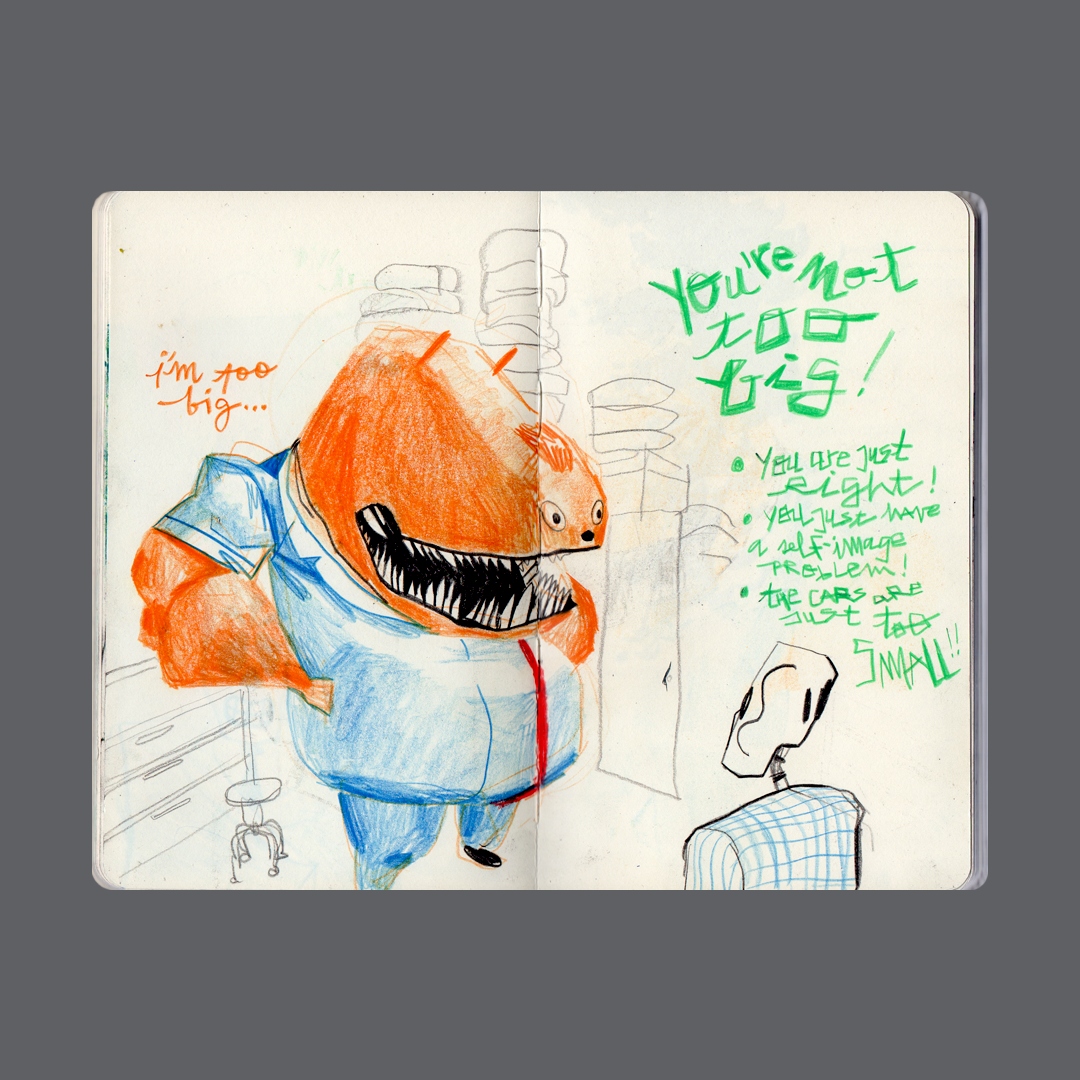 i'm too
big...
You're not
too
big!
• You are just
right!
• You just have
a self-image
problem!
• the cars are
just too
SMALL!!